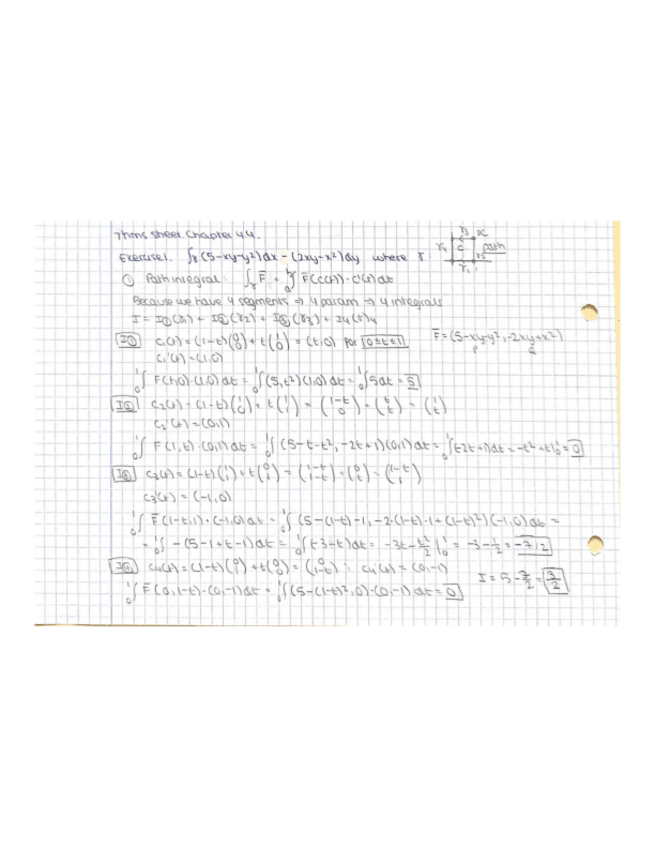 Thms sheet Chapter 44.
Exercise 1. ∫γ (5-xy-y²)dx - (2xy-x²)dy where γ
γ3 x γ4 C path γ2 γ1
① Path integral: ∫γ F̄ = ∫ₐᵇ F̄(c(t))·c'(t)dt
Because we have 4 segments ⇒ 4 param ⇒ 4 integrals
I = I①(γ1) + I②(γ2) + I③(γ3) + I4(γ)4
I① c₁(t) = (1-t)(0 0) + t(1 0) = (t,0) for 0≤t≤1 F̄ = (5-xy-y², -2xy+x²)
P Q
c₁'(t) = (1,0)
₀∫¹ F(t,0)·(1,0)dt = ₀∫¹ (5,t²)(1,0)dt = ₀∫¹ 5dt = 5
I② c₂(t) = (1-t)(1 0) + t(1 1) = (1-t 0) + (t t) = (1 t)
c₂'(t) = (0,1)
₀∫¹ F(1,t)·(0,1)dt = ₀∫¹ (5-t-t², -2t+1)(0,1)dt = ₀∫¹ (-2t+1)dt = -t²+t|₀¹ = 0
I③ c₃(t) = (1-t)(1 1) + t(0 1) = (1-t 1-t) + (0 t) = (1-t 1)
c₃'(t) = (-1,0)
₀∫¹ F̄(1-t,1)·(-1,0)dt = ₀∫¹ (5-(1-t)-1, -2·(1-t)·1+(1-t)²)(-1,0)dt =
= ₀∫¹ -(5-1+t-1)dt = ₀∫¹ (-3-t)dt = -3t-t²/2|₀¹ = -3-1/2 = -7/2
I④ c₄(t) = (1-t)(0 1) + t(0 0) = (0 1-t); c₄'(t) = (0,-1)
I = 5-7/2 = 3/2
₀∫¹ F̄(0,1-t)·(0,-1)dt = ₀∫¹ (5-(1-t)²,0)·(0,-1)dt = 0